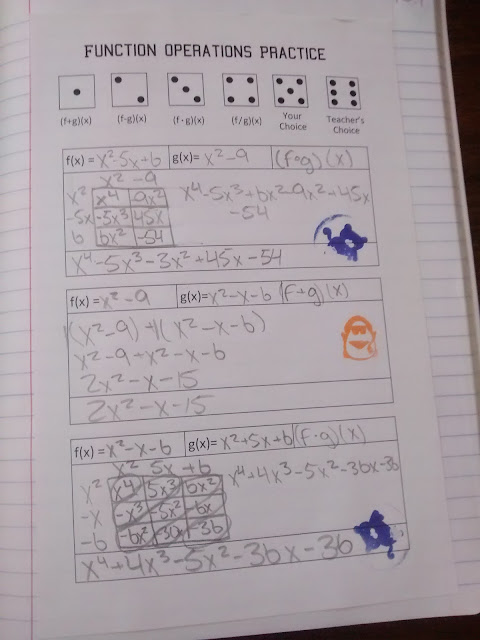 FUNCTION OPERATIONS PRACTICE
(f+g)(x) (f-g)(x) (f·g)(x) (f/g)(x) Your Choice Teacher's Choice
f(x) = x²-5x+6 g(x)= x²-9 (f·g)(x)
x² -9
x² x⁴ -9x² x⁴-5x³+6x²-9x²+45x
-5x -5x³ 45x -54
6 6x² -54
x⁴-5x³-3x²+45x-54
f(x) = x²-9 g(x)= x²-x-6 (f+g)(x)
1(x²-9)+1(x²-x-6)
x²-9+x²-x-6
2x²-x-15
2x²-x-15
f(x) = x²-x-6 g(x)= x²+5x+6 (f·g)(x)
x² 5x +6
x² x⁴ 5x³ 6x² x⁴+4x³-5x²-36x-36
-x -x³ -5x² -6x
-6 -6x² -30x -36
x⁴+4x³-5x²-36x-36